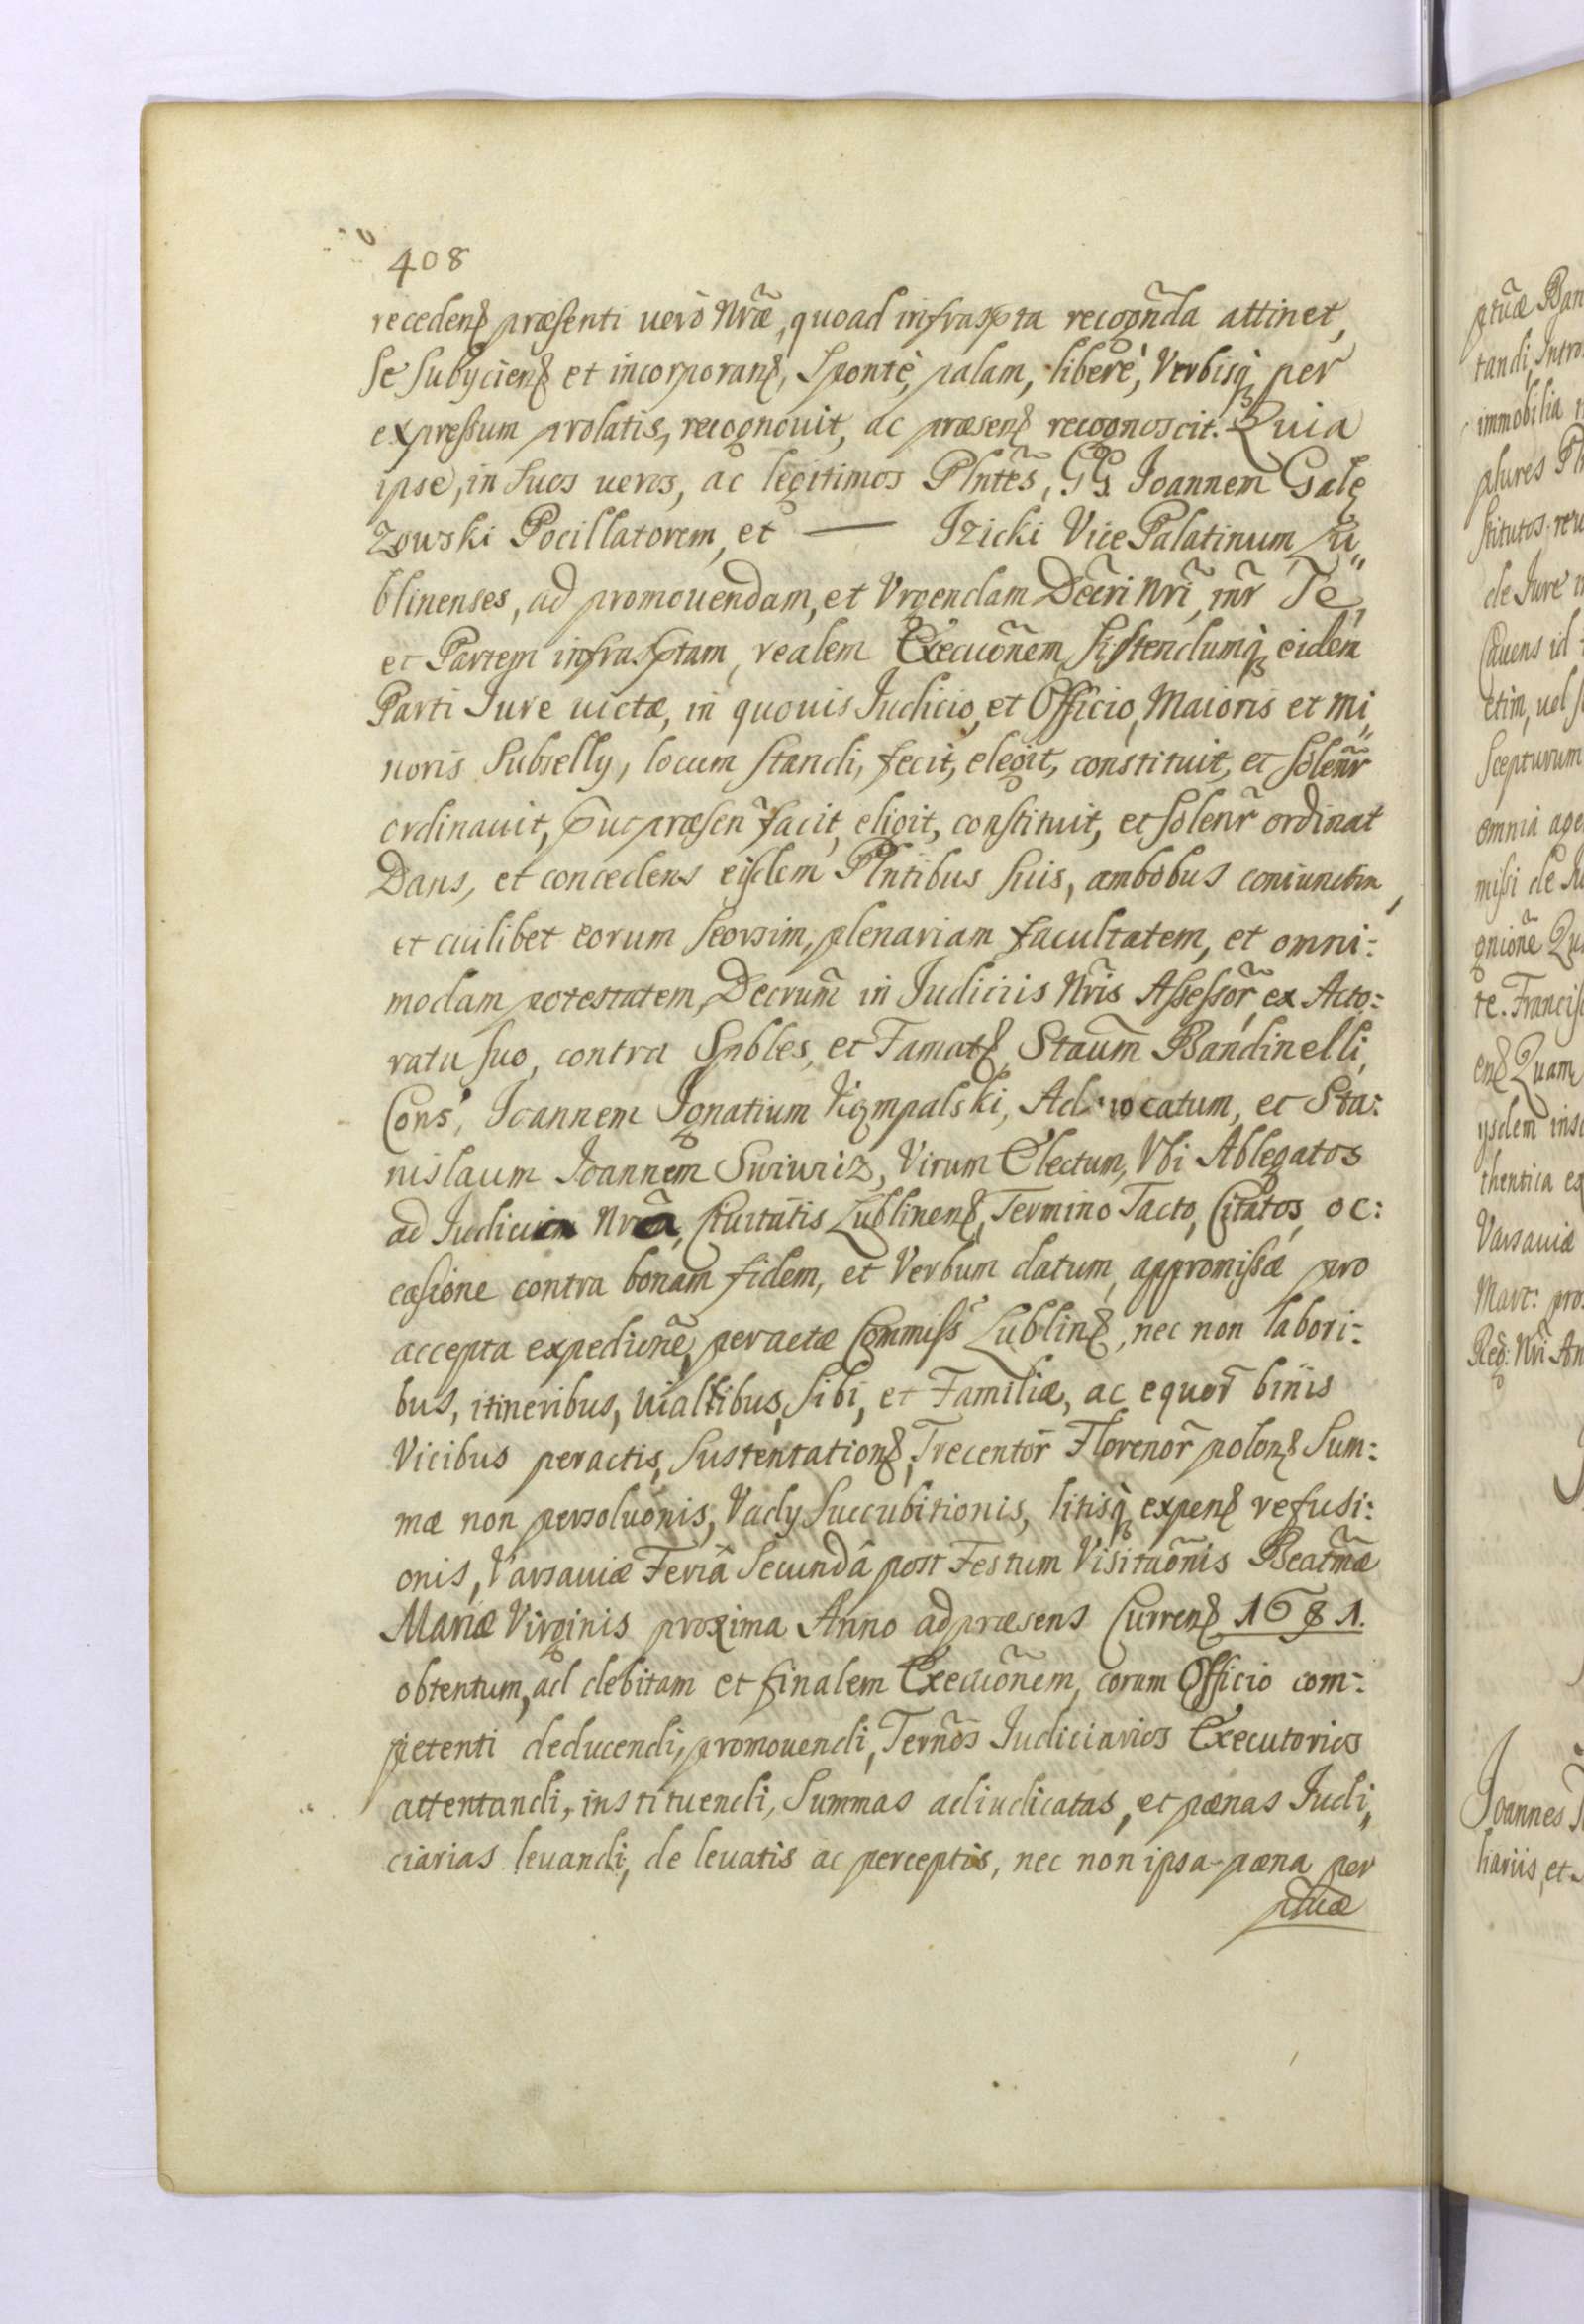 408
recedenꝭ præsenti uerò Nr̃æ, quoad infrasp̃ta recogñda attinet,
se subÿcienꝭ et incorporanꝭ, Spontè, palam, liberè, Verbisq́; per
expressum prolatis, recognouit, ac præsenꝭ recognoscit. Quia
ipse, in suos ueros, ac legitimos Plñtes, GG. Joannem Galę
zowski Pocillatorem, et — Izicki Vice Palatinum Lu„
blinenses, ad promouendam, et Vrgendam Decr̃i Nr̃i, inr̃ Te,
et Partem infrasp̃tam, realem Execuõnem, sistendumq́; eidem
Parti Jure uictæ, in quouis Judicio, et Officio, Maioris et mi„
noris Subsellÿ, locum standi, fecit, elegit, constituit, et solenr̃
ordinauit, p̃ut præsen̄ facit, eligit, constituit, et solenr̃ ordinat
Dans, et concedens eisdem Plñtibus suis, ambobus coniunctim,
et cuilibet eorum seorsim, plenariam facultatem, et omni:
modam potestatem, Decrum̃ in Judicijs Nr̃is Assessor̃, ex Acto:
ratu suo, contra Spbles, et Famatꝭ, Staum̃ Bandinelli,
Cons', Joannem Ignatium Kępalski, Aduocatum, et Sta:
nislaum Joannem Swiwicz, Virum Electum, Vti Ablegatos
ad Judicia Nr̃a, Ciuitatis Lublinenꝭ, Termino Tacto, Citatos, oc:
casione contra bonam fidem, et Verbum datum, appromissæ pro
accepta expedicõne, peractæ Commiss' Lublinꝭ, nec non labori:
bus, itineribus, uialtibus, sibi, et Familiæ, ac equor̃ binis
Vicibus peractis, Sustentationꝭ, Trecentor̃ Florenor̃ polonꝭ Sum:
mæ non persoluõnis, Vadÿ Succubitionis, litisq́; expenꝭ refusi:
onis, Varsauiæ Feriâ Secundâ post Festum Visituõnis Beatm̃æ
Mariæ Virginis proxima Anno ad præsens Currenꝭ 1681.
obtentum, ad debitam et finalem Execuõnem, coram Officio com:
petenti deducendi, promouendi, Ternõs Judiciarios Executorios
attentandi, instituendi, Summas adiudicatas, et pænas Judi„
ciarias leuandi, de leuatis ac perceptis, nec non ipsa pæna per
ptuæ